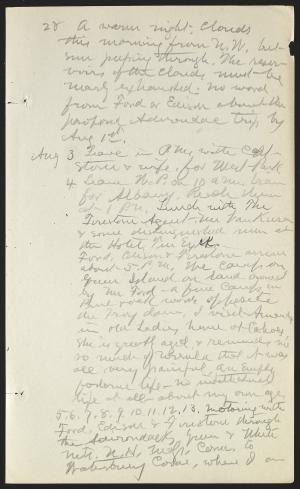 28 A warm night. Clouds
this morning from N.W. but
sun peeping through. The reser-
voirs of the clouds must be
nearly exhausted. No word
from Ford or Edison about the
proposed Adirondac trip, by
Aug 1st.
Aug 3 Leave in P.M. with
& wife, for West Park
4 Leave W.P. on 10 a.m. train
for Albany. Reach there
at 1 P.M. Lunch with The
Firestone Agent Mr Van
& some distinguished men at
the Hotel Ten Eyck.
Ford, Edison & Firestone arrive
about 5 P.M. We camp on
Green Island on land owned
by Mr Ford - a fine camp in
woods opposite
the Troy dam. I visit Amanda
in old Ladies home at Cohoes.
She is greatly aged, & reminds me
so much of Ursula that it was
all very painful. An empty
forlorn life - no intellectual
life at all - about my own age.
5, 6, 7, 8, 9, 10, 11, 12, 13. Motoring with
Ford, Edison & Firestone through
the Adirondacks, Green & White
mts. N.H. Mass. Conn. to
Waterbury Conn, where I am